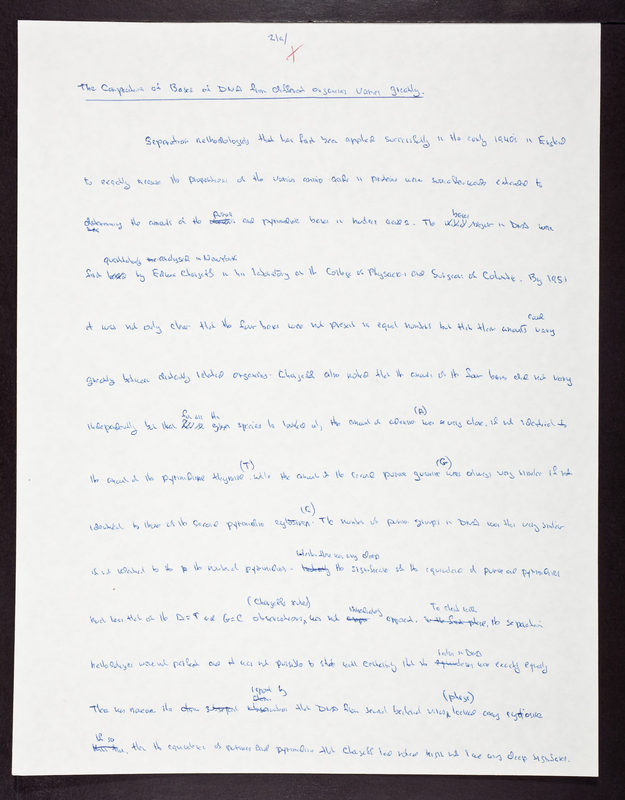 2(a)
X
The Composition of Bases of DNA from different organisms Varies greatly.
Separation methodologies that has first been applied successfully in the early 1940s in England
to exactly measure the proportions of the various amino acids in proteins were extended to
purine bases
determining the amounts of the and pyrimidine bases in nucleic acids. The in DNA were
qualitatively analysed in New York
first by Edwin Chargaff in his laboratory at the College of Physicians and Surgeons of Columbia. By 1951
it was not only clear that the four bases were not present in equal numbers but that their amounts vary
greatly between distantly related organisms. Chargaff also noted that the amounts of the four bases did not vary
for all the (A)
independently but that species he looked at, the amount of adenine was very close, if not identical to
(T) (G)
the amount of the pyrimidine thymine, while the amount of the second purine guanine was always very similar if not
(C)
identical to those of the second pyrimidine cytosine. The number of purine groups in DNA was thus very similar
Whether there was any deep
if not identical to the the number of pyrimidines. the significance of the equivalence of purine and pyrimidines
(Chargaff's rules) immediately To start with
and less that of the A=T and G=C observations, was not apparent. the separation
methodologies were not perfect and it was not possible to state with certainty that the were exactly equal
report by (phage)
There was moreover the that DNA from several bacterial viruses lacked any cytosine
If so
then the equivalence of purines and pyrimidines that Chargaff had noted might not have any deep significance.